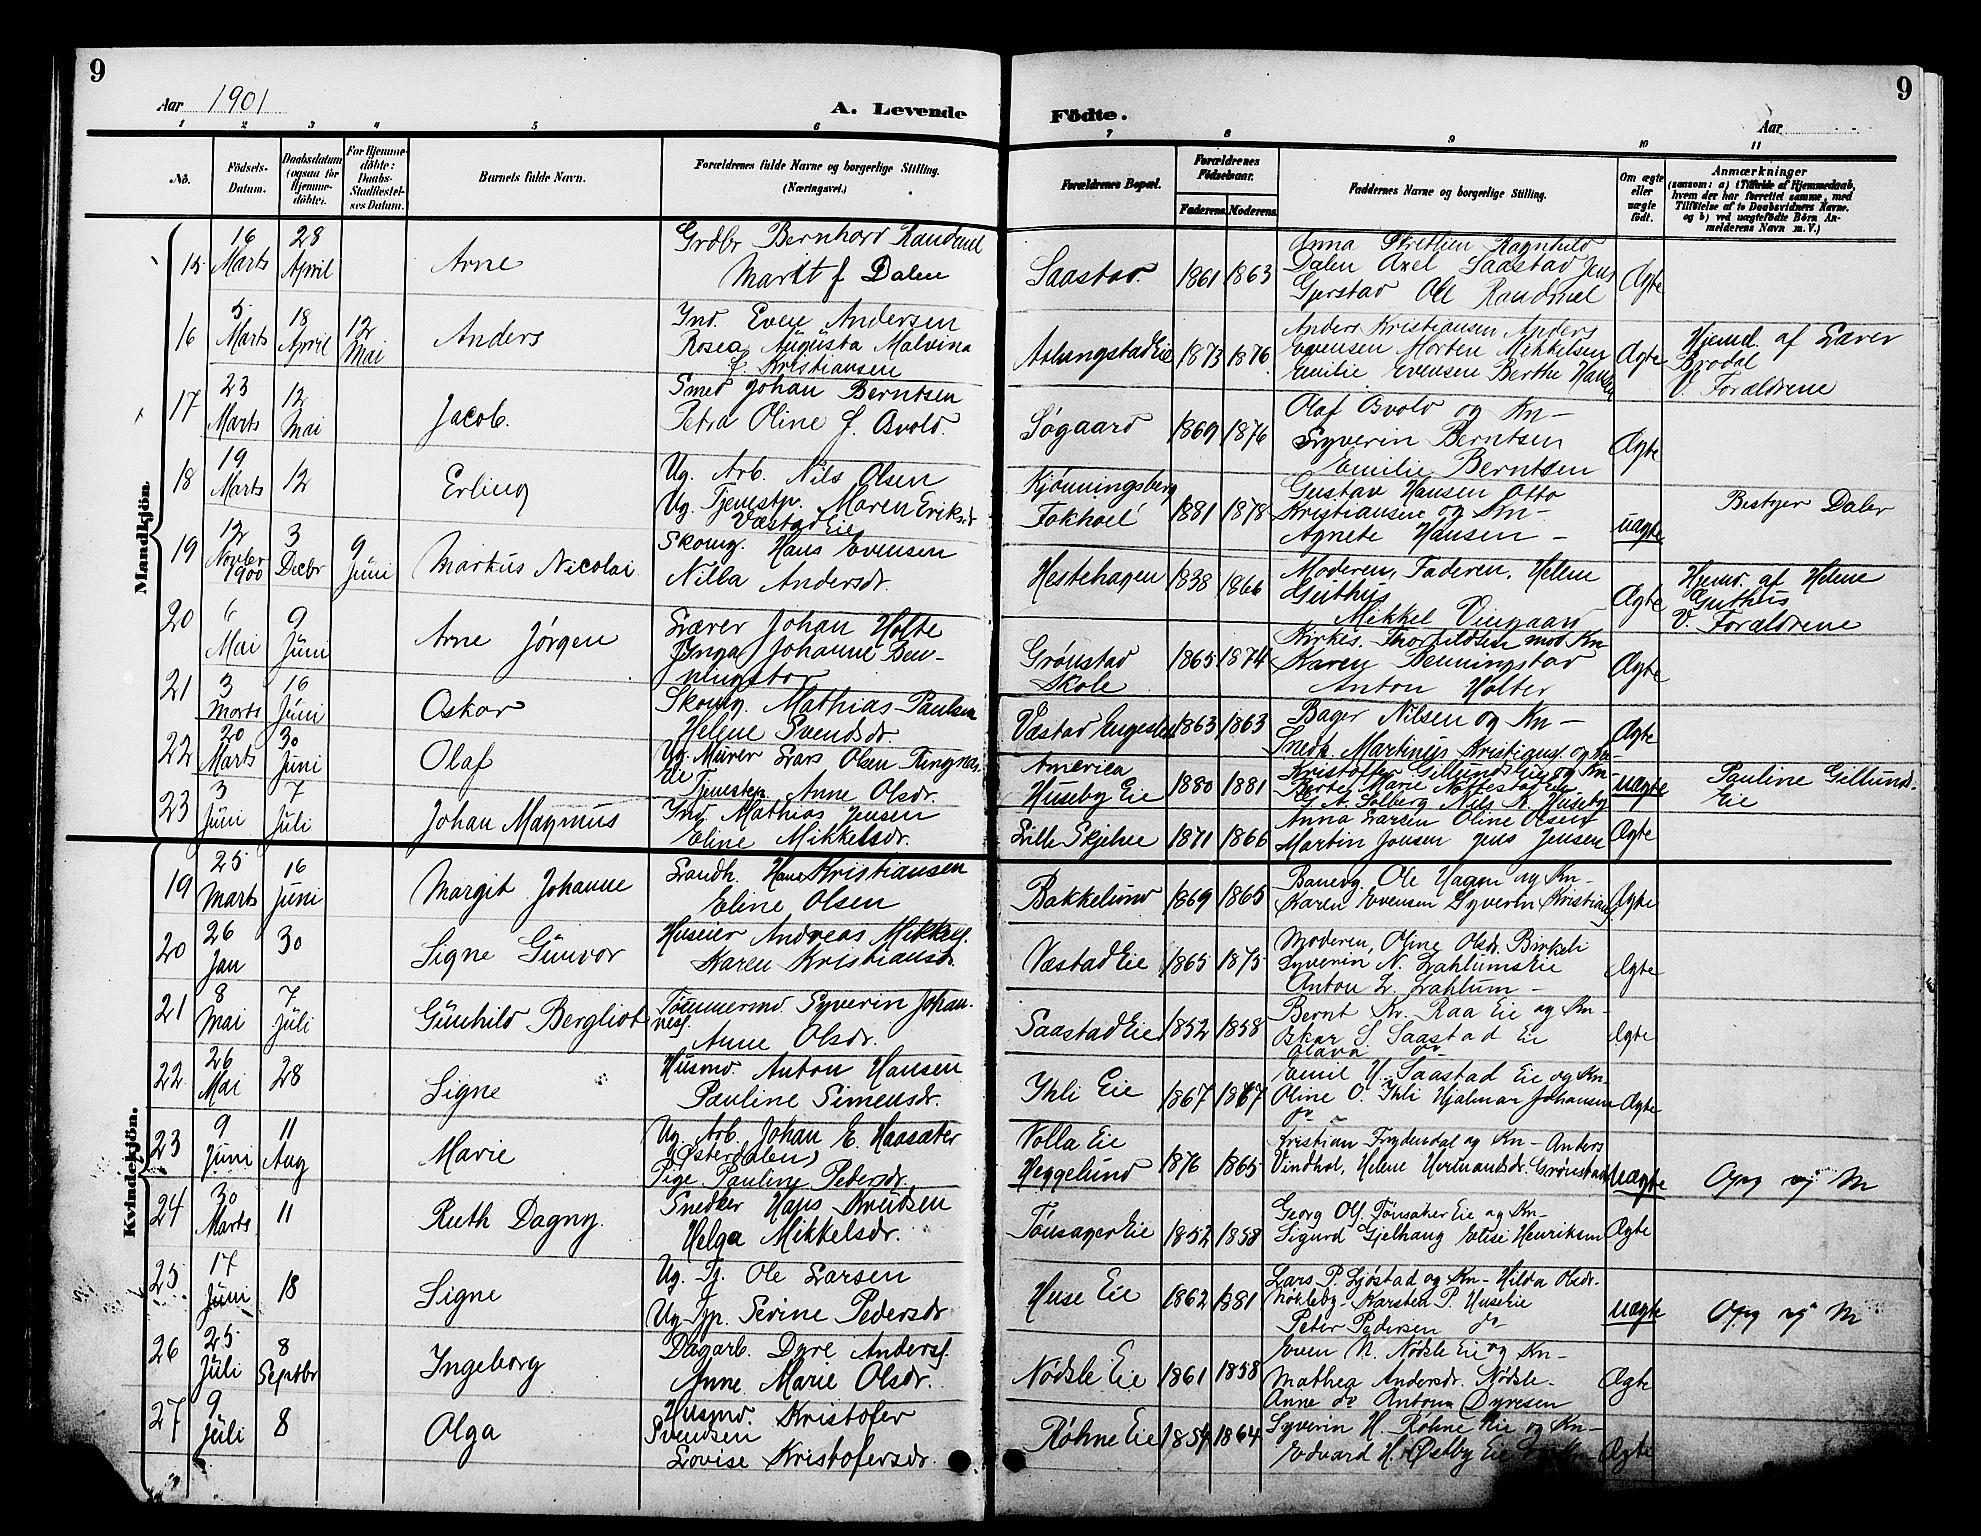 9
9
Aar 1901
A. Levende
Födte.
Aar
1 2 3 4 5 6 7 8 9 10 11
No.
Födsels-Datum.
Daabsdatum (ogsaa for Hjemme-döbte).
For Hjemme-döbte: Daabs-Stadfæstel-ses Datum.
Barnets fulde Navn.
Forældrenes fulde Navne og borgerlige Stilling. (Næringsvei.)
Forældrenes Bopæl.
Forældrenes Födselsaar.
Faderens. Moderens.
Faddernes Navne og borgerlige Stilling.
Om ægte eller uægte født.
Anmærkninger
(saasom: a) i Tilfælde af Hjemmedaab, hvem der har forrettet samme, med Tilföielse af to Daabsvidners Navne. og b) ved uægtefödte Börn An-melderens Navn m.V.)
Mandkjön.
15 16 Marts 28 April Arne
Grdbr Bernhard Randmel
Marit f Dalen
Saastad 1861 1863
Dalen Axel Saastad Jens
Gjerstad Ole Randmel
Ægte
16 5 Marts 18 April 12 Mai Anders
Ind. Even Andersen
Rosea Augusta Malvina
f. Kristiansen
1873 1876
Anders Kristiansen Anders
Evensen Morten Mikkelsen
Emilie Evensen Berthe Hansen
Ægte
Hjemd. af Lærer
Brodal
V. Forældrene
17 23 Marts 12 Mai Jacob.
Smed Johan Berntsen
Petra Oline f. Evold.
Søgaard 1869 1876
Olaf Evold og Kn-
Syverin Berntsen
Emilie Berntsen
Ægte
18 19 Marts 12 Erling
Ug. Arb. Nils Olsen
Ug. Tjenestp. Maren Eriksdr
Væstad Eie
Kjønningsberg
Fokhol 1881 1878
Gustav Hansen Otto
Kristiansen og Kn-
Agnete Hansen -
uægte
Bestyer Daler
19 12 Novbr 1900 3 Decbr 9 Juni Markus Nicolai
Skomg. Hans Evensen
Nilla Andersdr.
Hestehagen 1838 1866
Moderen, Faderen, Helene
Guthus
Mikkel Vingaard
Ægte
Hjemd. af Helene
Guthus
V. Forældrene
20 6 Mai 9 Juni Arne Jørgen
Lærer Johan Holte
Inga Johanne Ben-
ningstad
Grønstad
Skole 1865 1874
Kirkes. Thorkildsen med Kn
Karen Benningstad
Anton Holter
Ægte
21 3 Marts 16 Juni Oskar
Skomg. Mathias Paulsen
Helene Svendsdr.
Væstad Engeslet 1863 1863
Bager Nilsen og Kn-
Snedk. Martinus Kristians. og Kn-
Ægte
22 20 Marts 30 Juni Olaf
Ug. Murer Lars Olsen Tingnæs-
Eie
Tjenestep. Anne Olsdr.
America
Huseby Eie 1880 1881
Kristoffer Gillund Eie og Kn-
G. A. Solberg Nils A. Huseby
uægte
Pauline Gillund-
Eie
23 3 Juni 7 Juli Johan Magnus
Ind Mathias Jensen
Eline Mikkelsdr.
Lille Skjelve 1871 1866
Anna Larsen Oline Olsen
Martin Jensen Jens Jensen
Ægte
Kvindekjön.
19 25 Marts 16 Juni Margit Johanne
Landh. Hans Kristiansen
Eline Olsen
Bakkelund 1869 1865
Banevg. Ole Hagen og Kn-
Karen Evensen Syverin Kristians
Ægte
20 26 Jan 30 Signe Gunvor
Huseier Andreas Mikkels.
Karen Kristiansdr.
Væstad Eie 1865 1875
Moderen, Oline Olsdr. Birkeli
Syverin N. Lahlums Eie
Anton L. Lahlum -
Ægte
21 8 Mai 7 Juli Gunhild Bergliot
Tømmermd. Syverin Johan-
nes.
Anne Olsdr.
Saastad Eie 1852 1858
Bernt Kr. Raa Eie og Kn-
Oskar S. Saastad Eie
Olava do
Ægte
22 26 Mai 28 Signe
Husmd Anton Hansen
Pauline Simensdr.
Ihli Eie 1867 1867
Emil H. Saastad Eie og Kn-
Oline O. Ihli Hjalmar Johansen
do -
Ægte
23 9 Juni 11 Aug Marie
Ug. Arb. Johan E. Haasæter
(Østerdalen)
Pige Pauline Pedersdr.
Volla Eie
Heggelund 1876 1865
Kristian Frydendal og Kn- Anders
Vindhol, Helene Hermandsdr. Grønstad
uægte
Opg vj M
24 30 Marts 11 Ruth Dagny.
Snedker Hans Knudsen
Helga Mikkelsdr.
Tønsager Eie 1852 1858
Georg Olf. Tønsaker Eie og Kn-
Sigurd Gjelhaug Elise Henriksen
Ægte
25 17 Juni 18 Signe
Ug. Tj. Ole Larsen
Ug Tp. Serine Pedersdr
Huse Eie 1862 1881
Lars P. Ljøstad og Kn- Hilda Olsdr.
Nøkleby - Karsten P. Huse Eie
Peter Pedersen do
uægte
Opg vj M
26 25 Juli 8 Septbr Ingeborg
Dagarb. Dyre Anders.
Anne Marie Olsdr.
Nødsle Eie 1861 1858
Even N. Nødsle Eie og Kn-
Mathea Andersdr. Nødsle-
Anne do Anton Dyresen
Ægte
27 9 Juli 8 Olga
Husmd. Kristofer
Svendsen
Lovise Kristofersdr.
Røhne Eie 1854 1864
Syverin H. Røhne Eie og Kn-
Edvard H. Østby Eie og Kn-
Ægte